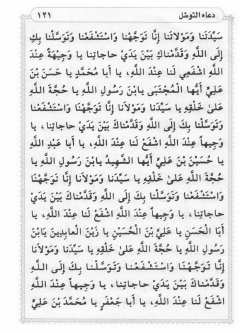 دعاء التوسّل ١٢١
سَيِّدَتَنا وَمَوْلاتَنا إِنَّا تَوَجَّهْنا وَاسْتَشْفَعْنا وَتَوَسَّلْنا بِكِ
إِلَى اللَّهِ وَقَدَّمْناكِ بَيْنَ يَدَيْ حاجاتِنا يا وَجِيْهَةً عِنْدَ
اللَّهِ اشْفَعِي لَنا عِنْدَ اللَّهِ، يا أَبا مُحَمَّدٍ يا حَسَنَ بْنَ
عَلِيٍّ أَيُّهَا الْمُجْتَبَى يَابْنَ رَسُولِ اللَّهِ يا حُجَّةَ اللَّهِ
عَلَىٰ خَلْقِهِ يا سَيِّدَنا وَمَوْلانا إِنَّا تَوَجَّهْنا
وَاسْتَشْفَعْنا وَتَوَسَّلْنا بِكَ إِلَى اللَّهِ وَقَدَّمْناكَ بَيْنَ يَدَيْ حاجاتِنا، يا
وَجِيهاً عِنْدَ اللَّهِ اشْفَعْ لَنا عِنْدَ اللَّهِ، يا أَبا عَبْدِ اللَّهِ
يا حُسَيْنَ بْنَ عَلِيٍّ أَيُّهَا الشَّهِيدُ يَابْنَ رَسُولِ اللَّهِ يا
حُجَّةَ اللَّهِ عَلىٰ خَلْقِهِ يا سَيِّدَنا وَمَوْلانا إِنَّا تَوَجَّهْنا
وَاسْتَشْفَعْنا وَتَوَسَّلْنا بِكَ إِلَى اللَّهِ وَقَدَّمْناكَ بَيْنَ يَدَيْ
حاجاتِنا، يا وَجِيهاً عِنْدَ اللَّهِ اشْفَعْ لَنا عِنْدَ اللَّهِ، يا
أَبَا الْحَسَنِ يا عَلِيَّ بْنَ الْحُسَيْنِ يا زَيْنَ الْعابِدِينَ يَابْنَ
رَسُولِ اللَّهِ يا حُجَّةَ اللَّهِ عَلىٰ خَلْقِهِ يا سَيِّدَنا وَمَوْلانا
إِنَّا تَوَجَّهْنا وَاسْتَشْفَعْنا وَتَوَسَّلْنا بِكَ إِلَى اللَّهِ
وَقَدَّمْناكَ بَيْنَ يَدَيْ حاجاتِنا، يا وَجِيهاً عِنْدَ اللَّهِ
اشْفَعْ لَنا عِنْدَ اللَّهِ، يا أَبا جَعْفَرٍ يا مُحَمَّدَ بْنَ عَلِيٍّ